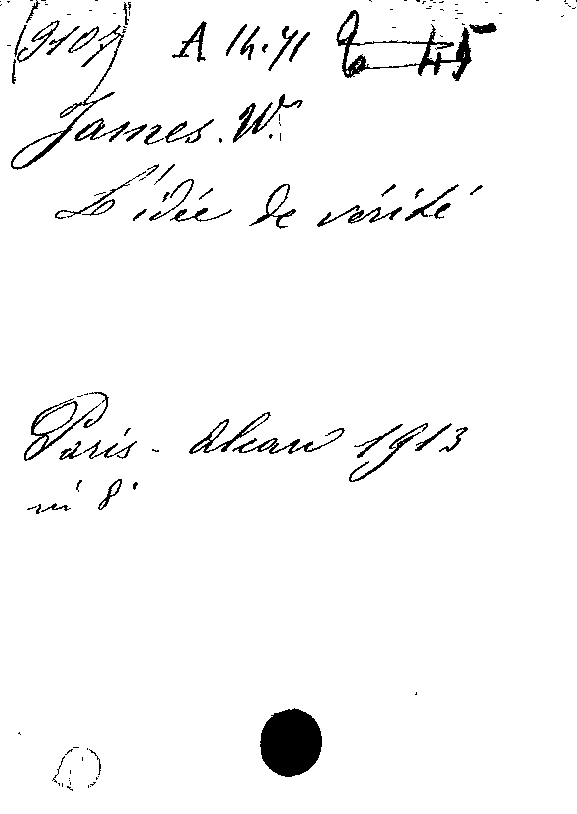 (9107) A 14.71
James. W.
L'idée de vérité
Paris - Alcan 1913
in 8°